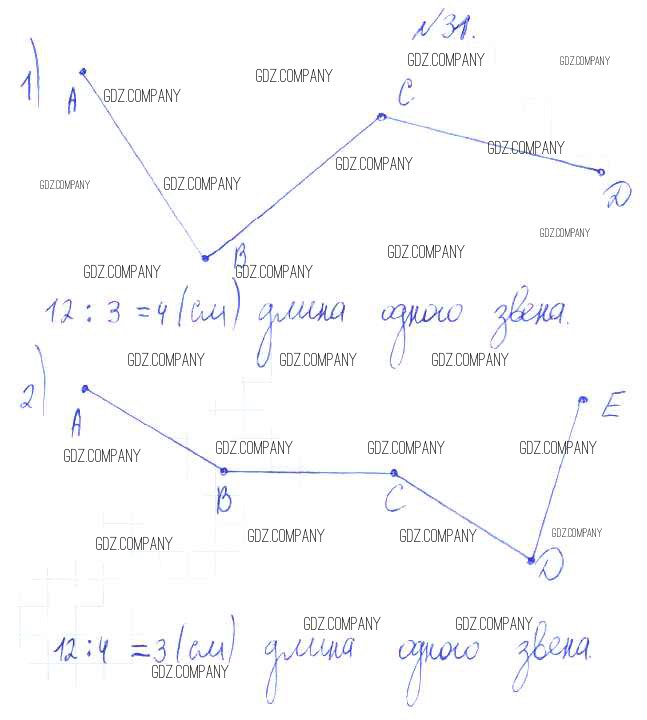 N31.
GDZ.COMPANY
GDZ.COMPANY
GDZ.COMPANY
1)
A
GDZ.COMPANY
C
GDZ.COMPANY
GDZ.COMPANY
GDZ.COMPANY
GDZ.COMPANY
D
GDZ.COMPANY
B
GDZ.COMPANY
GDZ.COMPANY
GDZ.COMPANY
12 : 3 = 4 (см) длина одного звена.
2)
GDZ.COMPANY
GDZ.COMPANY
GDZ.COMPANY
A
E
GDZ.COMPANY
GDZ.COMPANY
GDZ.COMPANY
GDZ.COMPANY
B
C
GDZ.COMPANY
GDZ.COMPANY
GDZ.COMPANY
GDZ.COMPANY
D
GDZ.COMPANY
GDZ.COMPANY
12 : 4 = 3 (см) длина одного звена.
GDZ.COMPANY